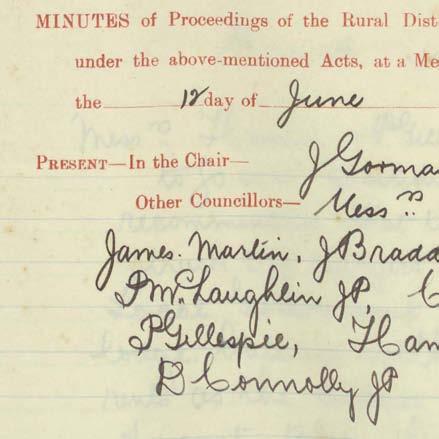 MINUTES of Proceedings of the Rural Dist
under the above-mentioned Acts, at a Me
the 12 day of June
PRESENT—In the Chair— J Gorma
Other Councillors— Mess rs
James. Martin, J Bradd
P McLaughlin JP, C
P Gillespie, Han
D Connolly JP